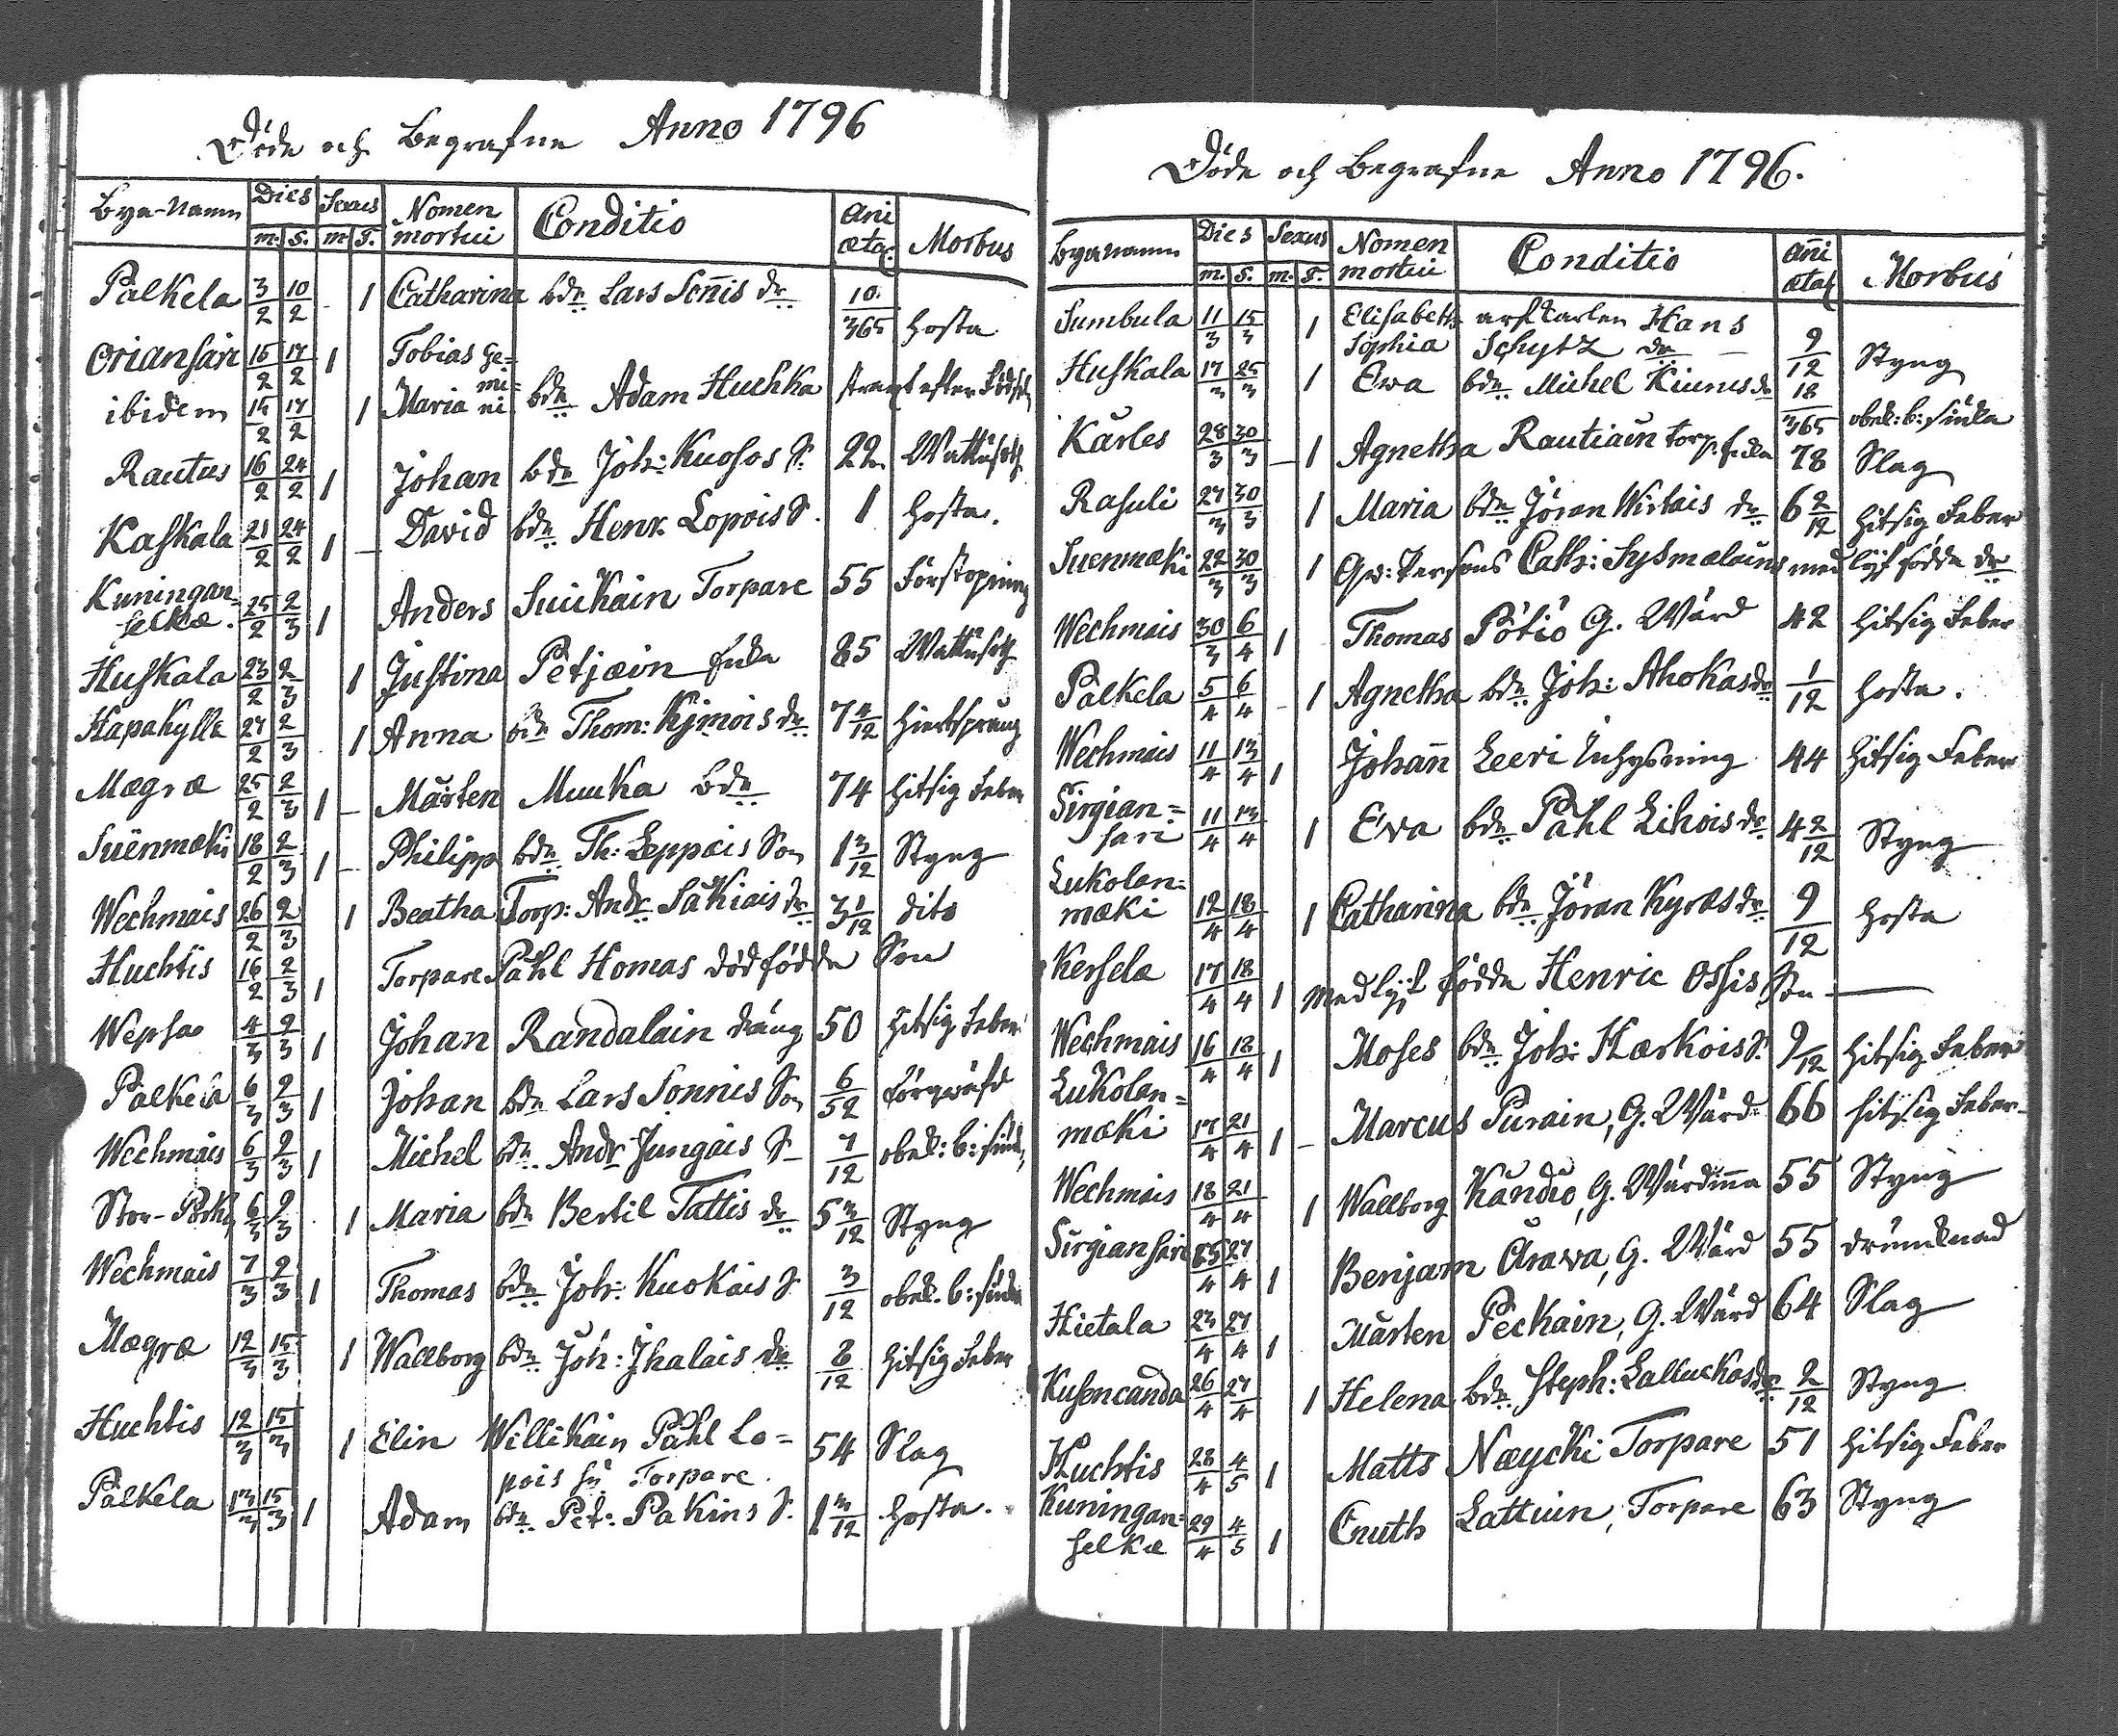 Döde och Begrafne Anno 1796
Bya-Namn Dies Sexus Nomen mortui Conditio Añi ætat: Morbus
m. S. m. F.
Pålkela 3/2 10/2 - 1 Catharina bdn Lars Soñis dr 10/365 Hosta
Oriansari 15/2 17/2 1 Tobias Ge=
mi=
ibidem 15/2 17/2 1 Maria ni bdn Adam Huchka straxt efter Födseln
Rautus 16/2 24/2 1 Johan bdn Joh: Kuosos S. 22 Wattusot
Kaskala 21/2 24/2 1 - David bdn Henr. Lopois S. 1 Hosta.
Kuningan=
selkæ. 25/2 2/3 1 Anders Suikain Torpare 55 Förstopning
Huskala 23/2 2/3 1 Justina Petjæin Enka 85 Wattusot
Hapakylle 27/2 2/3 1 Anna bdn Thom: Kjmois dr 7 4/12 Hiertsprång
Mægræ 25/2 2/3 1 - Mårten Muuka bdn 74 Hitsig Feber
Suenmæki 18/2 2/3 1 - Philipp bdn Th: Leppæis Son 1 3/12 Styng
Wechmais 26/2 2/3 1 Beatha Torp: Andr Säkiäis dr 3 1/12 dito
Huchtis 16/2 2/3 1 Torpare Påhl Homas dödfödde Son
Wepsa 4/3 2/3 1 Johan Randalain dräng 50 Hitsig Feber
Pålkela 6/3 2/3 1 Johan bdn Lars Sonnis Son 6/52 förqväfd
Wechmais 6/3 2/3 1 Michel bdn Andr Jungais S 7/12 obek: b: siuk,
Stor-Pork 6/3 2/3 1 Maria bdn Bertil Tattis dr 5 3/12 Styng
Wechmais 7/3 2/3 1 Thomas bdn Joh: Kuokais S. 3/12 obek. b: siuka
Mægræ 12/3 15/3 1 Wallborg bdn Joh: Jhalais dr 8/12 Hitsig Feber
Huchtis 12/3 15/3 1 Elin Willikain Påhl Lo= 54 Slag
pois Torpare.
Pålkela 13/3 15/3 1 Adam bdn Pet: Pakins S. 1 3/12 Hosta.
Döde och Begrafne Anno 1796.
Byanamn Dies Sexus Nomen mortui Conditio Añi ætat Morbus
m. S. m. F.
Sumbula 11/3 15/3 1 Elisabeth Hans
Sophia Schytz dr - 9/12 Styng
Huskala 17/3 25/3 1 Ewa bdn Michel Kiunus dr 18/365 obek: b: siuka
Kårles 28/3 30/3 - 1 Agnetha Rautiain torp. Enka 78 Slag
Rasuli 27/3 30/3 1 Maria bdn Jöran Wirtais dr 6 2/12 Hitsig Feber
Suenmæki 22/3 30/3 1 Qw: Persons Cath: Sysmælains med lijf födde dr
Wechmais 30/3 6/4 1 Thomas Pötiö G. Wärd 42 Hitsig Feber
Pålkela 5/4 6/4 - 1 Agnetha bdn Joh: Ahokas dr 1/12 Hosta.
Wechmais 11/4 13/4 1 Johañ Leeri Inhysning 44 Hitsig Feber
Sirgian=
sari 11/4 13/4 1 Ewa bdn Påhl Lihois dr 4 2/12 Styng
Lukolan=
mæki 12/4 18/4 1 Catharina bdn Jöran Kyræs dr 9/12 Hosta
Kersela 17/4 18/4 1 med lijf födde Henric Ossis Son
Wechmais 16/4 18/4 1 Moses bdn Joh: Hærkois S. 9/12 Hitsig Feber
Lukolan=
mæki 17/4 21/4 1 - Marcus Purain, G. Wärd 66 hitsig Feber
Wechmais 18/4 21/4 1 Wallborg Kandio, G. Wärdiña 55 Styng
Sirgiansari 25/4 27/4 1 Benjam Arawa, G. Wärd 55 drunknad
Hietala 23/4 27/4 1 Mårten Peckain, G. Wärd 64 Slag
Kusencanda 26/4 27/4 1 Helena bdn Steph: Lalluckas dr 2/12 Styng
Huchtis 28/4 4/5 1 Matts Næycki Torpare 51 Hitsig Feber
Kuningan=
selkæ 29/4 4/5 1 Cnuth Lattiun, Torpare 63 Styng